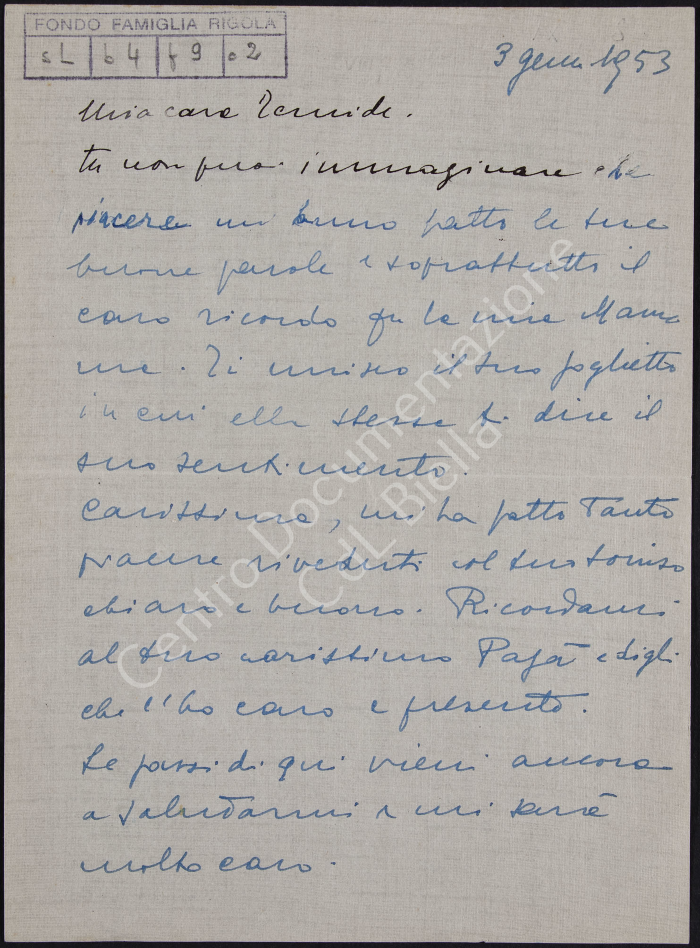 FONDO FAMIGLIA RIGOLA
sL b4 f9 o2
3 genn 1953
Mia cara Zenaide.
tu non puoi immaginare che
piacere mi hanno fatto le tue
buone parole e soprattutto il
caro ricordo per la mia Mam
ma. Ti unisco il suo foglietto
in cui ella stessa ti dice il
suo sentimento.
Carissima, mi ha fatto tanto
piacere rivederti col tuo sorriso
chiaro e buono. Ricordami
al tuo carissimo Papà e digli
che l'ho caro e presente.
Se passi di qui vieni ancora
a salutarmi e mi sarà
molto caro.
Centro Documentazione
CdL Biella